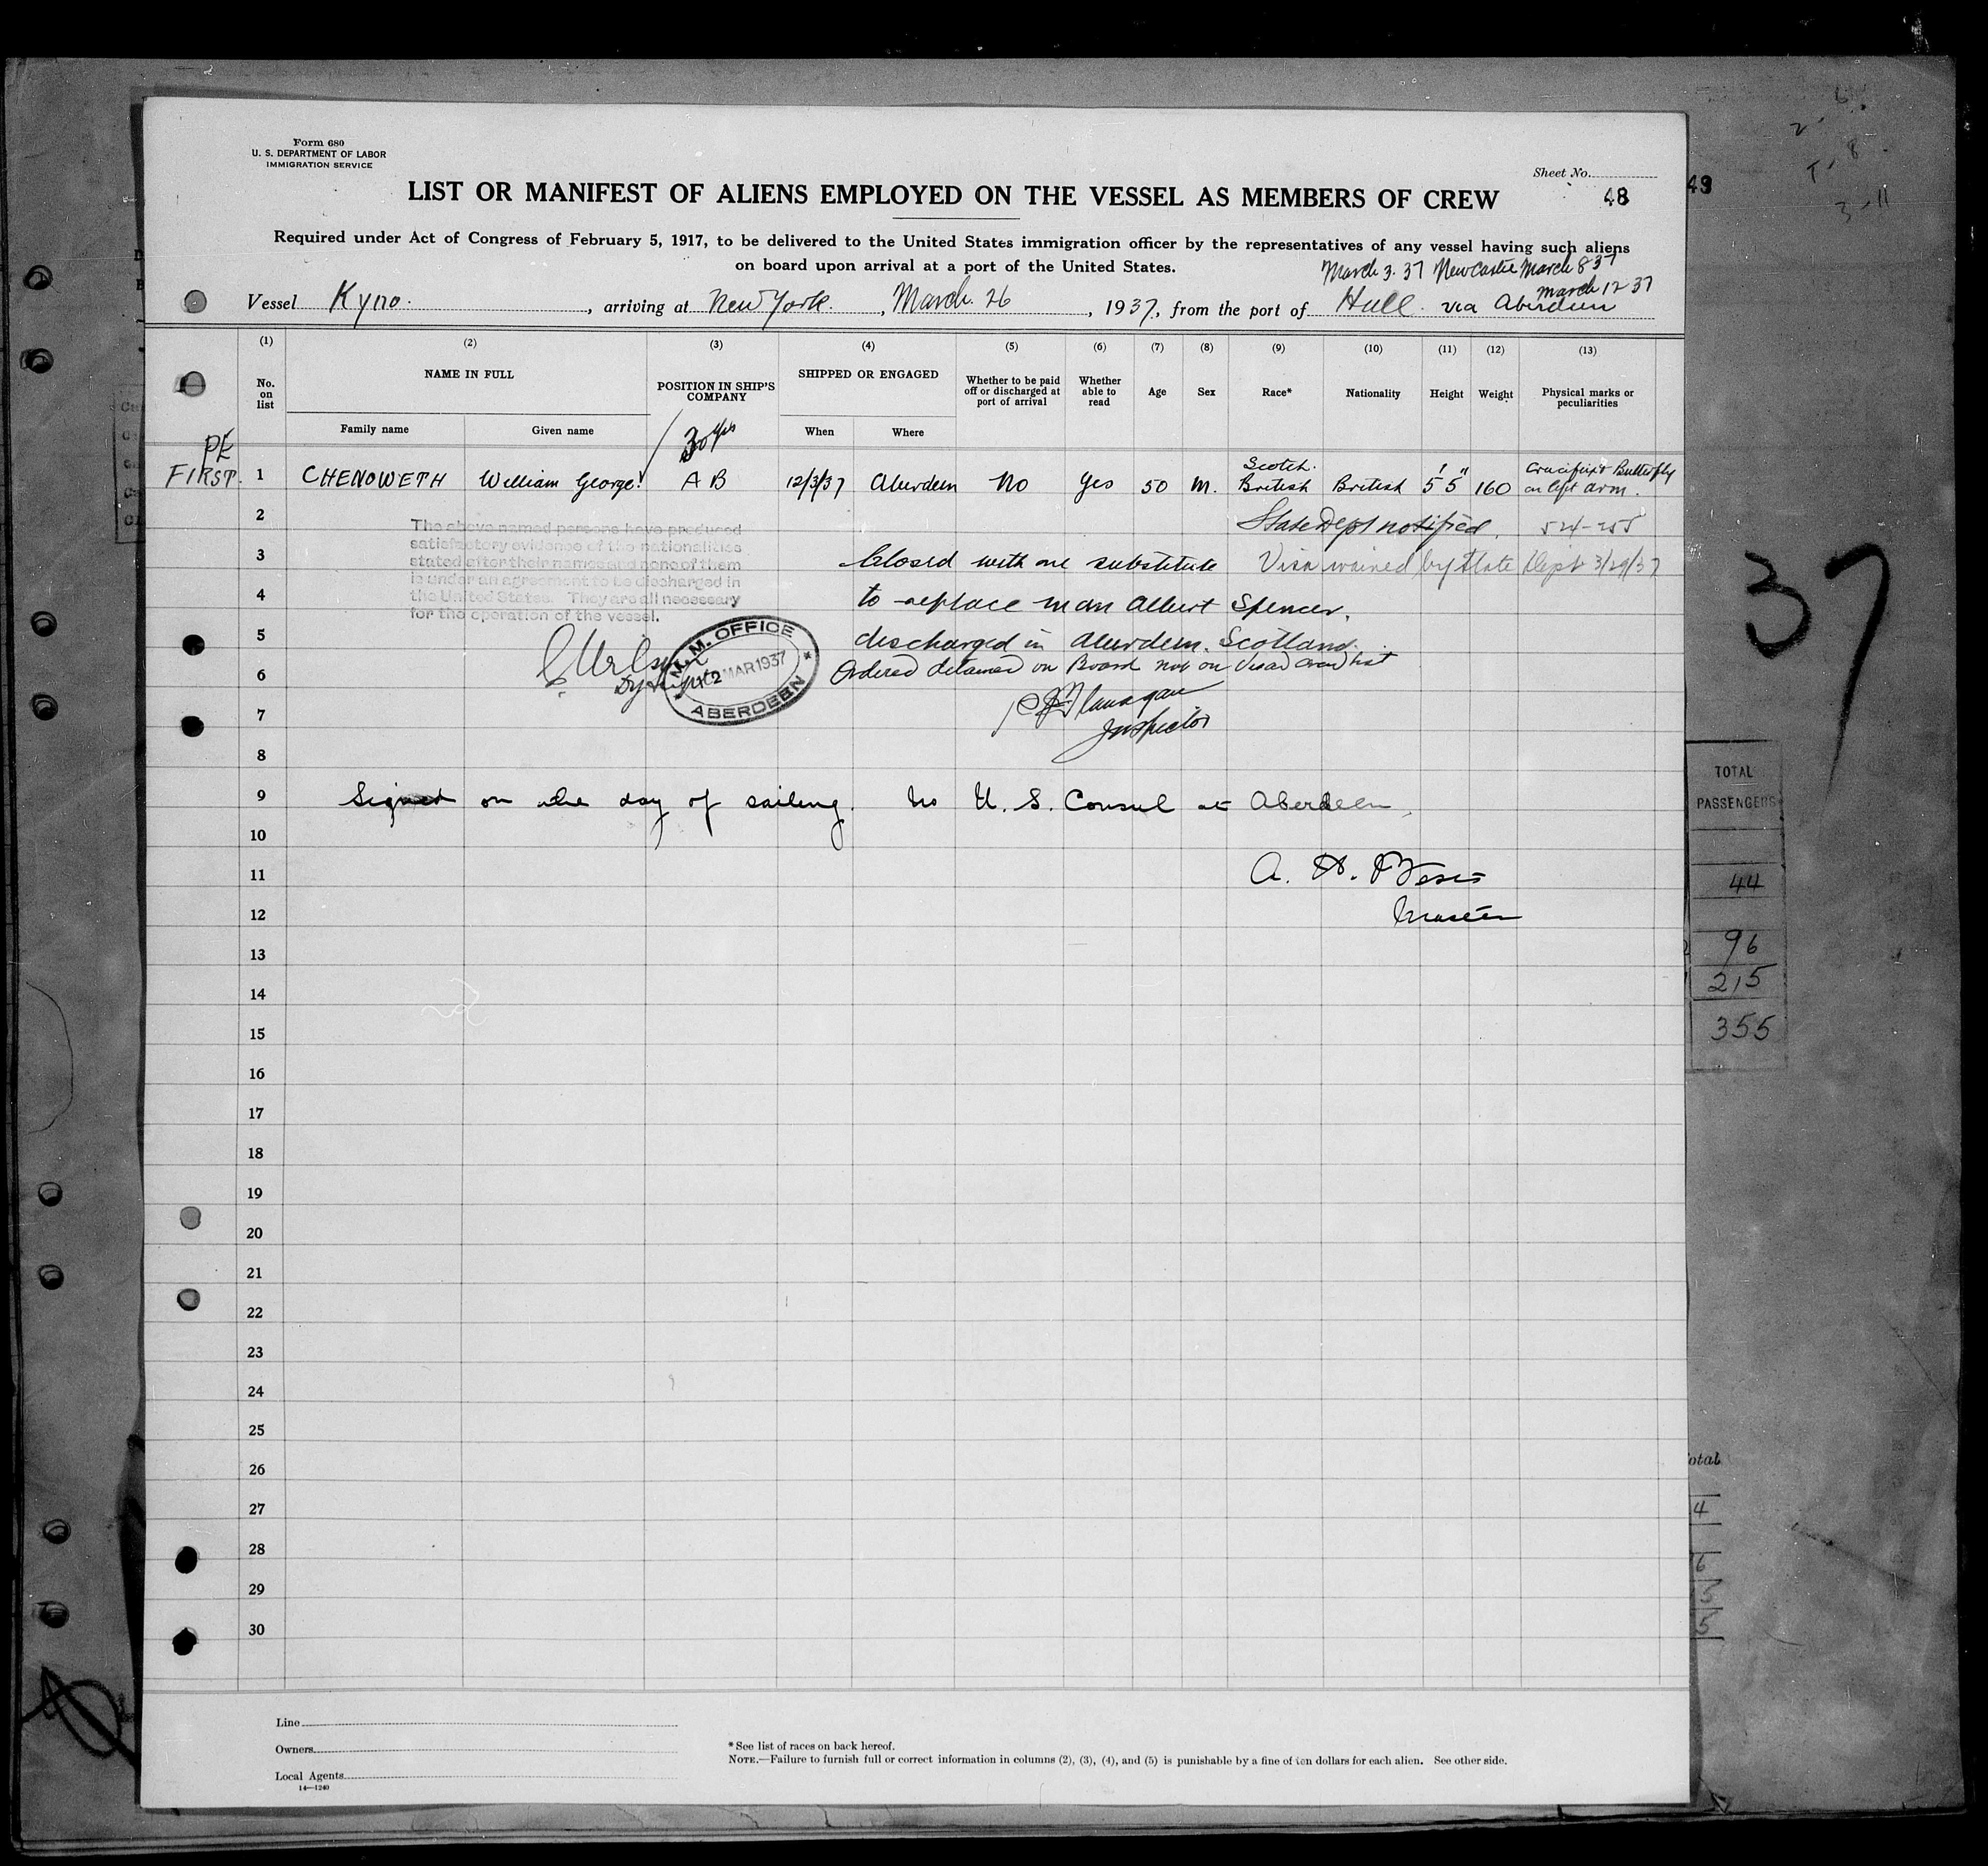 Form 680
U. S. DEPARTMENT OF LABOR
IMMIGRATION SERVICE
Sheet No.
48
49
LIST OR MANIFEST OF ALIENS EMPLOYED ON THE VESSEL AS MEMBERS OF CREW
Required under Act of Congress of February 5, 1917, to be delivered to the United States immigration officer by the representatives of any vessel having such aliens
on board upon arrival at a port of the United States.
March 3. 37 Newcastle March 8 37
March 12 37
Vessel Kyno. , arriving at New York. , March. 26 , 1937, from the port of Hull. via Aberdeen
(1) (2) (3) (4) (5) (6) (7) (8) (9) (10) (11) (12) (13)
No. on list
NAME IN FULL
Family name
Given name
POSITION IN SHIP'S COMPANY
SHIPPED OR ENGAGED
When
Where
Whether to be paid off or discharged at port of arrival
Whether able to read
Age
Sex
Race*
Nationality
Height
Weight
Physical marks or peculiarities
PE
30 yrs
FIRST. 1 CHENOWETH William George. A B 12/3/37 Aberdeen No Yes 50 M. Scotch. British British 5' 5" 160 Crucifix & Butterfly on left arm.
2 State Dept notified. 524-255
The above named persons have produced
satisfactory evidence of the nationalities
stated after their names and none of them
is under an agreement to be discharged in
the United States. They are all necessary
for the operation of the vessel.
3 Closed with one substitute Visa waived by State Dept 3/29/37
4 to replace man Albert Spencer.
5 discharged in Aberdeen. Scotland.
6 Ordered detained on Board not on visad crew list
M. M. OFFICE
12 MAR 1937
ABERDEEN
7 Flanagan
Inspector
8
9 Signed on the day of sailing. No U. S. Consul at Aberdeen.
10
11 A. H.
12 Master
13
14
15
16
17
18
19
20
21
22
23
24
25
26
27
28
29
30
37
TOTAL
PASSENGERS
44
96
215
355
otal
4
6
5
5
Line
Owners
Local Agents
14—1240
*See list of races on back hereof.
NOTE.—Failure to furnish full or correct information in columns (2), (3), (4), and (5) is punishable by a fine of ten dollars for each alien. See other side.